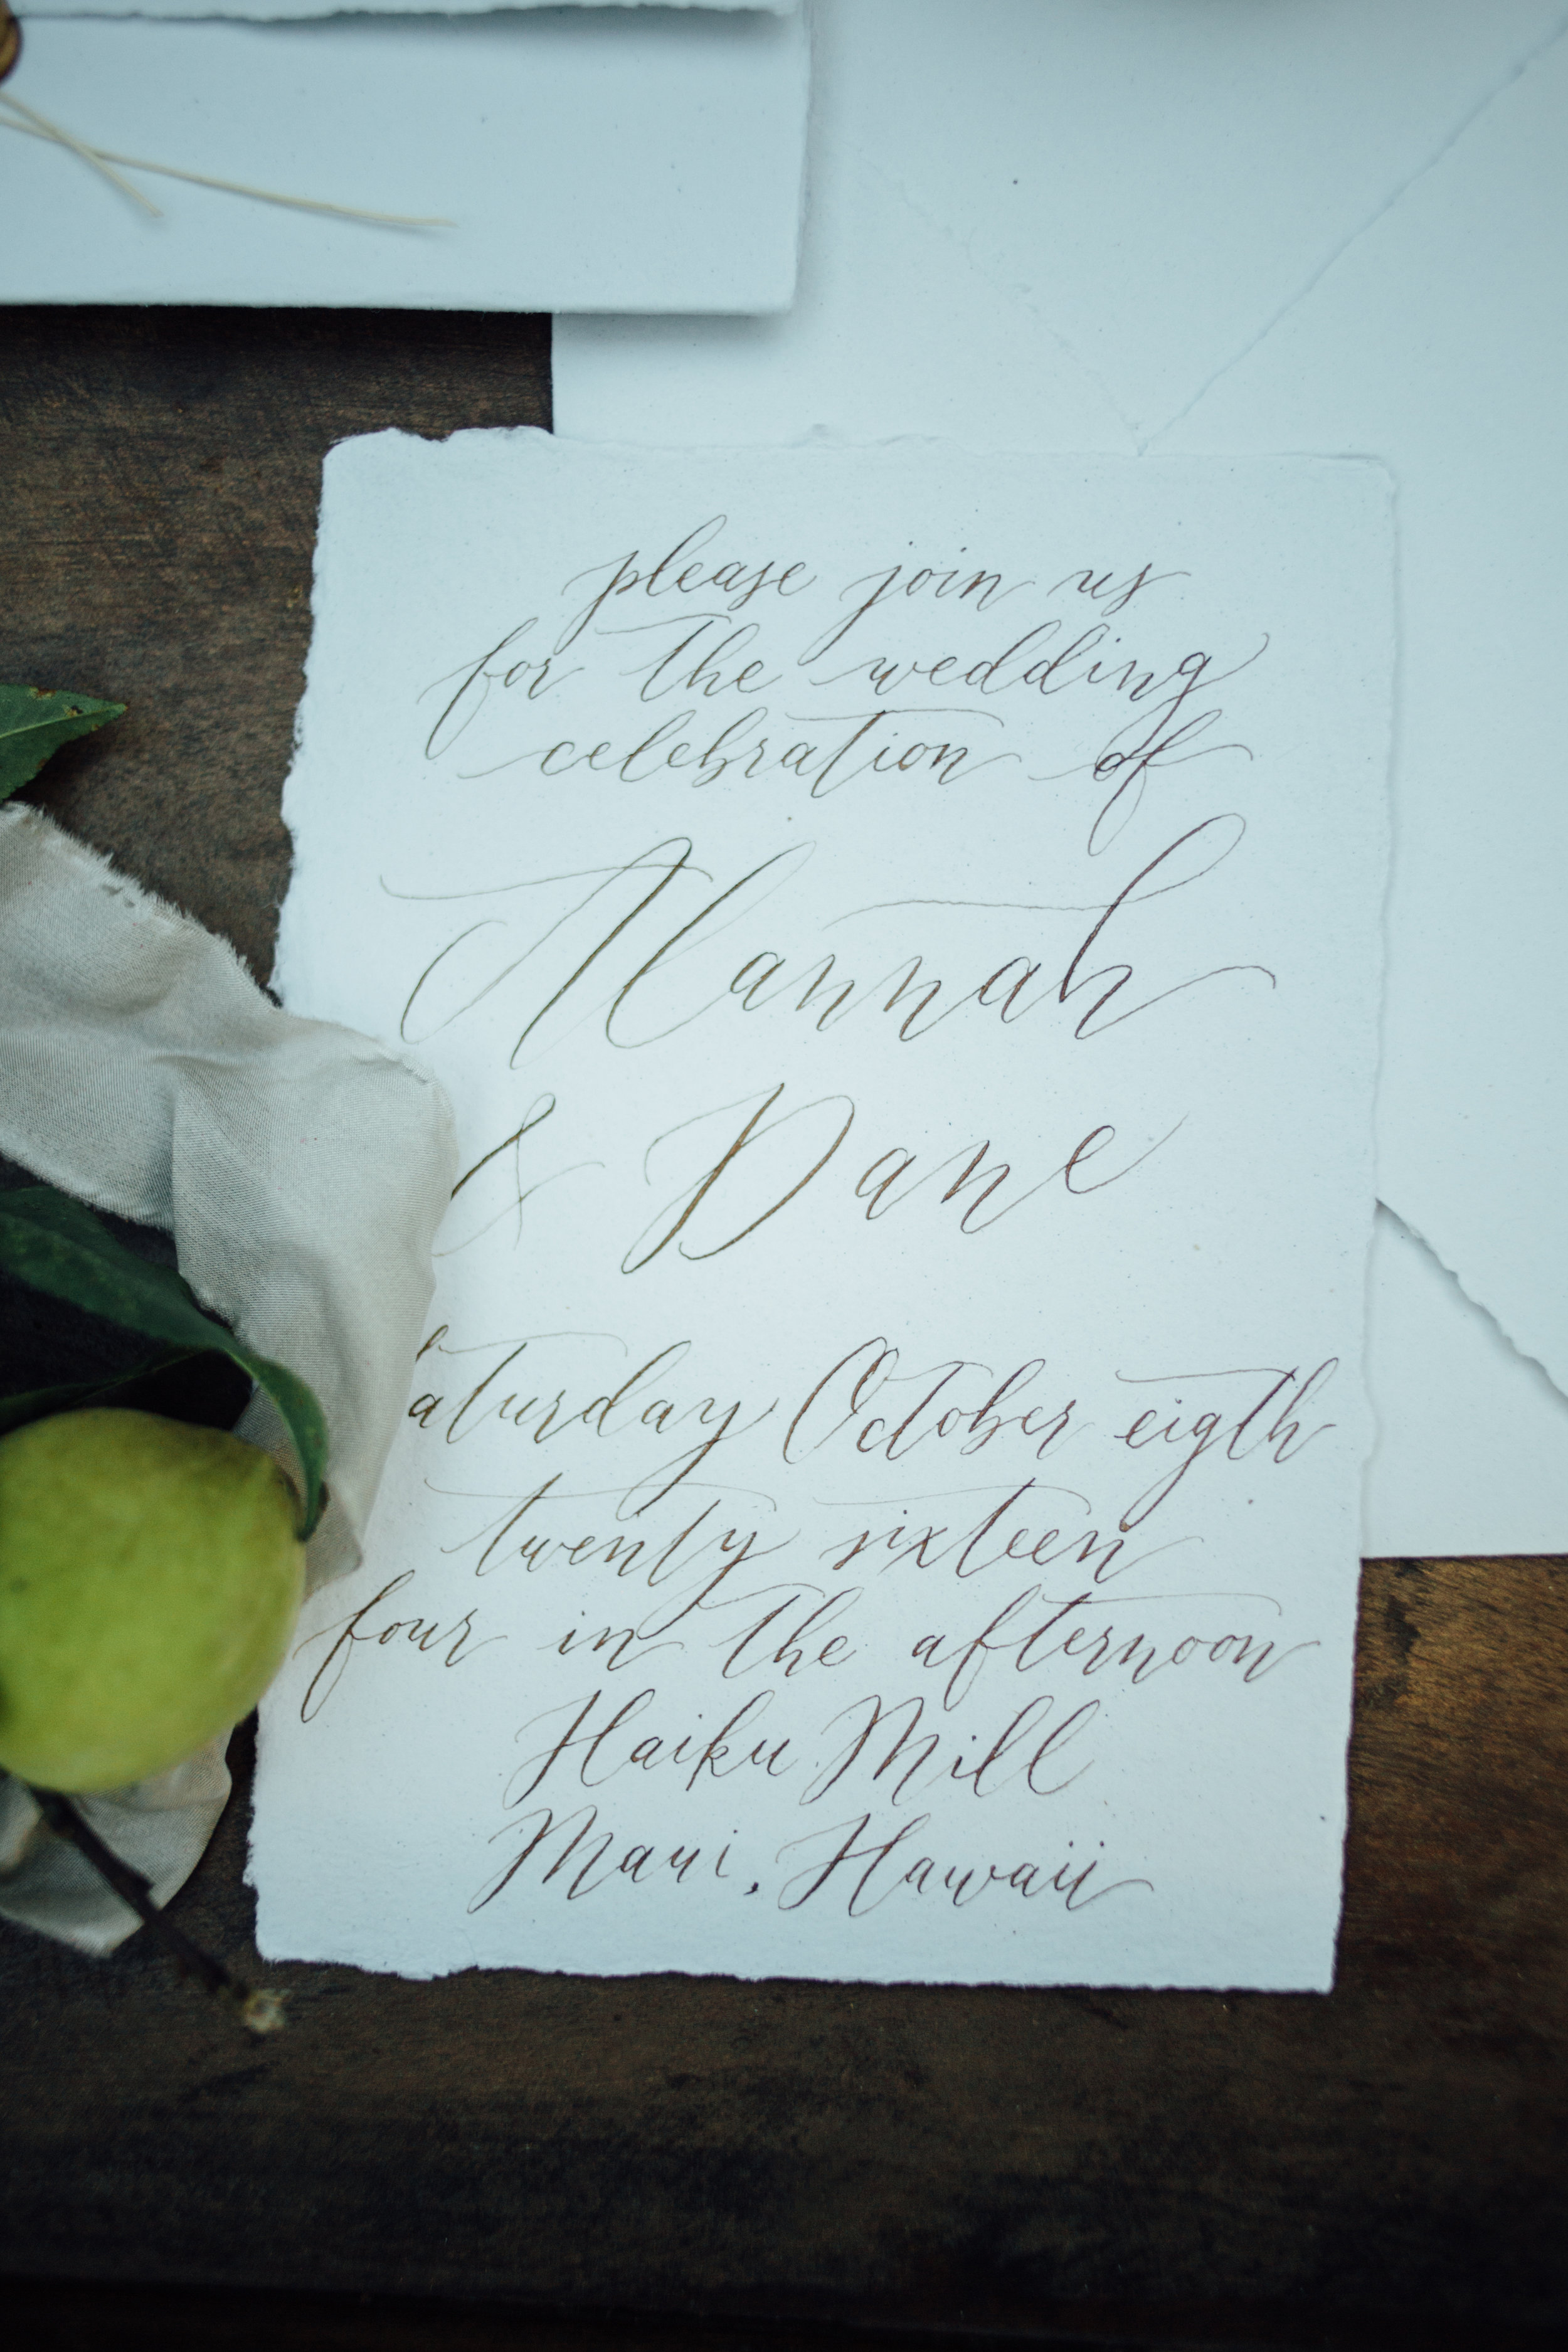 please join us
for the wedding
celebration of
Hannah
& Dane
Saturday October eigth
twenty sixteen
four in the afternoon
Haiku Mill
Maui, Hawaii